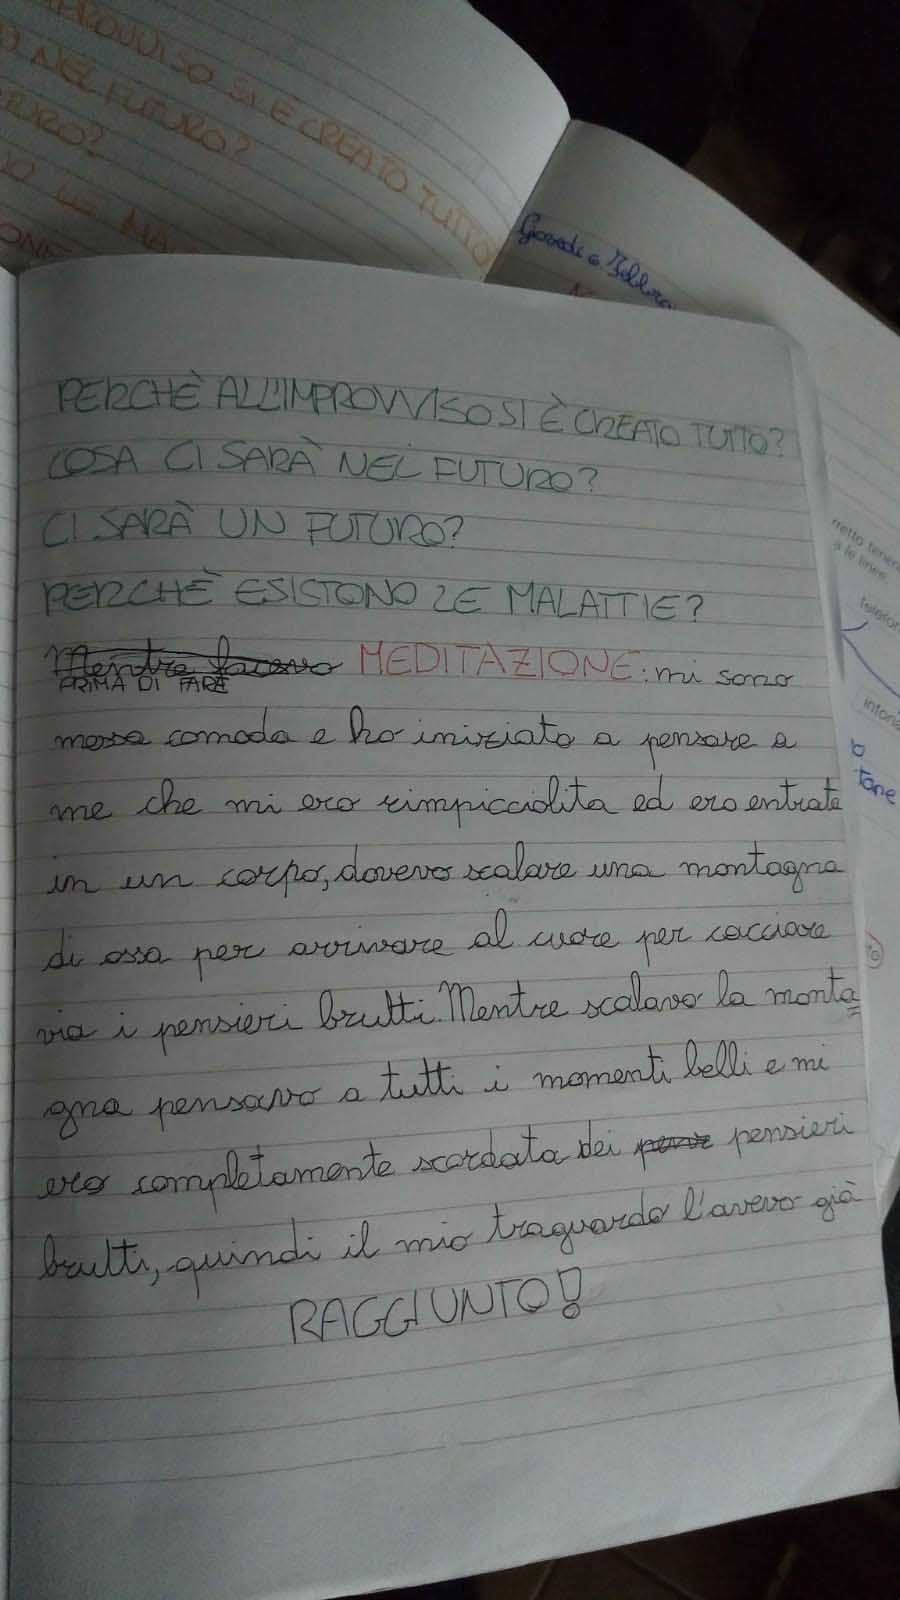 SI È CREATO TUTTO
NEL FUTURO?
PERCHÈ ALL'IMPROVVISO SI È CREATO TUTTO?
COSA CI SARÀ NEL FUTURO?
CI SARÀ UN FUTURO?
PERCHÈ ESISTONO LE MALATTIE?
Mentre facevo MEDITAZIONE: mi sono
PRIMA DI FARE
messa comoda e ho iniziato a pensare a
me che mi ero rimpicciolita ed ero entrata
in un corpo, dovevo scalare una montagna
di ossa per arrivare al cuore per cacciare
via i pensieri brutti. Mentre scalavo la monta
gna pensavo a tutti i momenti belli e mi
ero completamente scordata dei pensieri
brutti, quindi il mio traguardo l'avevo già
RAGGIUNTO!